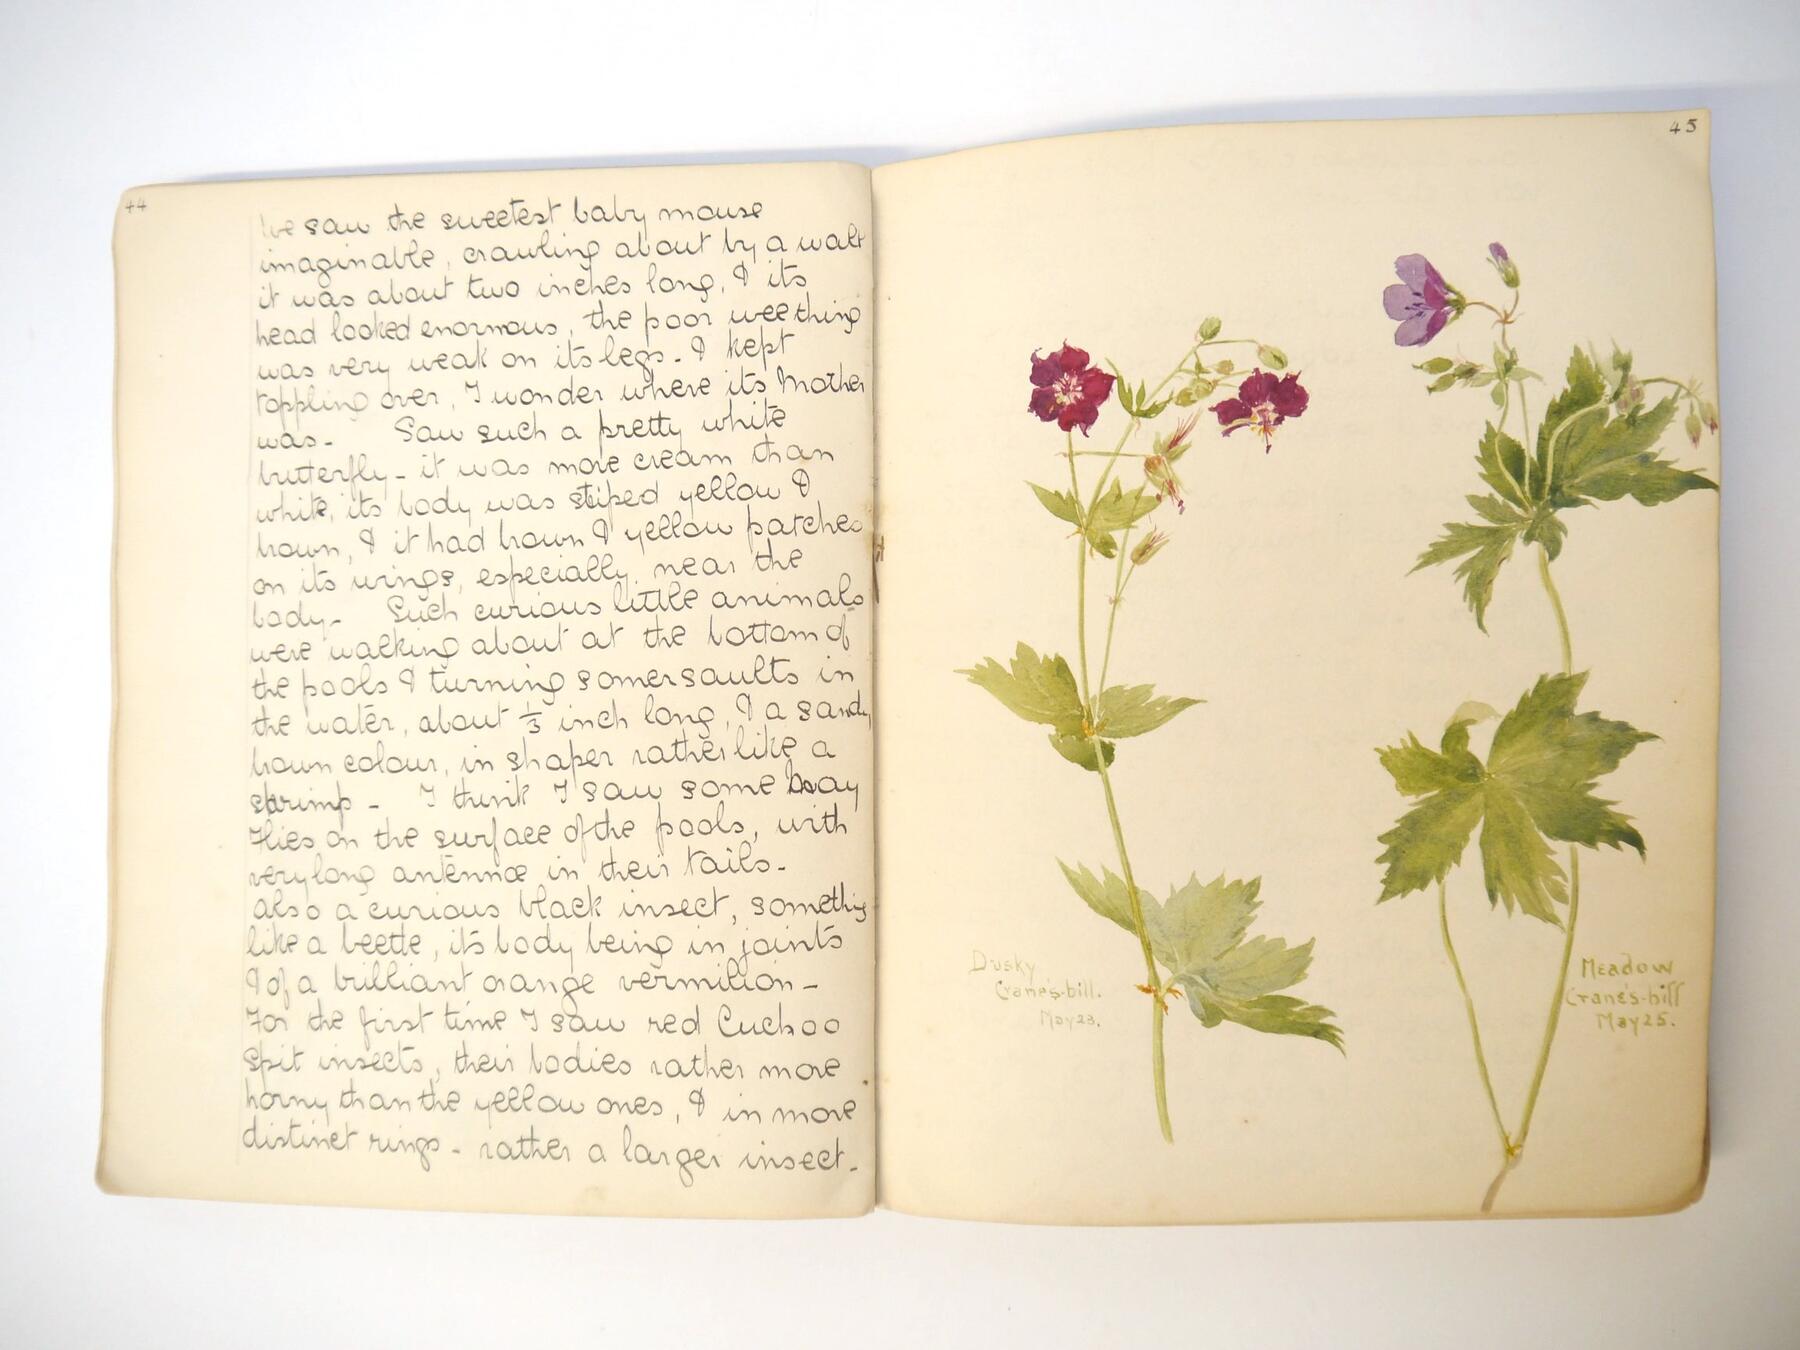 44
We saw the sweetest baby mouse
imaginable, crawling about by a wall
it was about two inches long, & its
head looked enormous, the poor wee thing
was very weak on its legs - & kept
toppling over, I wonder where its Mother
was - Saw such a pretty white
butterfly - it was more cream than
white, its body was striped yellow &
brown, & it had brown & yellow patches
on its wings, especially near the
body - Such curious little animals
were walking about at the bottom of
the pools & turning somersaults in
the water, about 1/3 inch long, & a sandy
brown colour, in shape rather like a
shrimp - I think I saw some May
Flies on the surface of the pools, with
very long antennæ in their tails -
also a curious black insect, something
like a beetle, its body being in joints
& of a brilliant orange vermilion -
For the first time I saw red Cuckoo
Spit insects, their bodies rather more
horny than the yellow ones, & in more
distinct rings - rather a larger insect -
45
Dusky
Crane's-bill.
May 23.
Meadow
Crane's-bill
May 25.